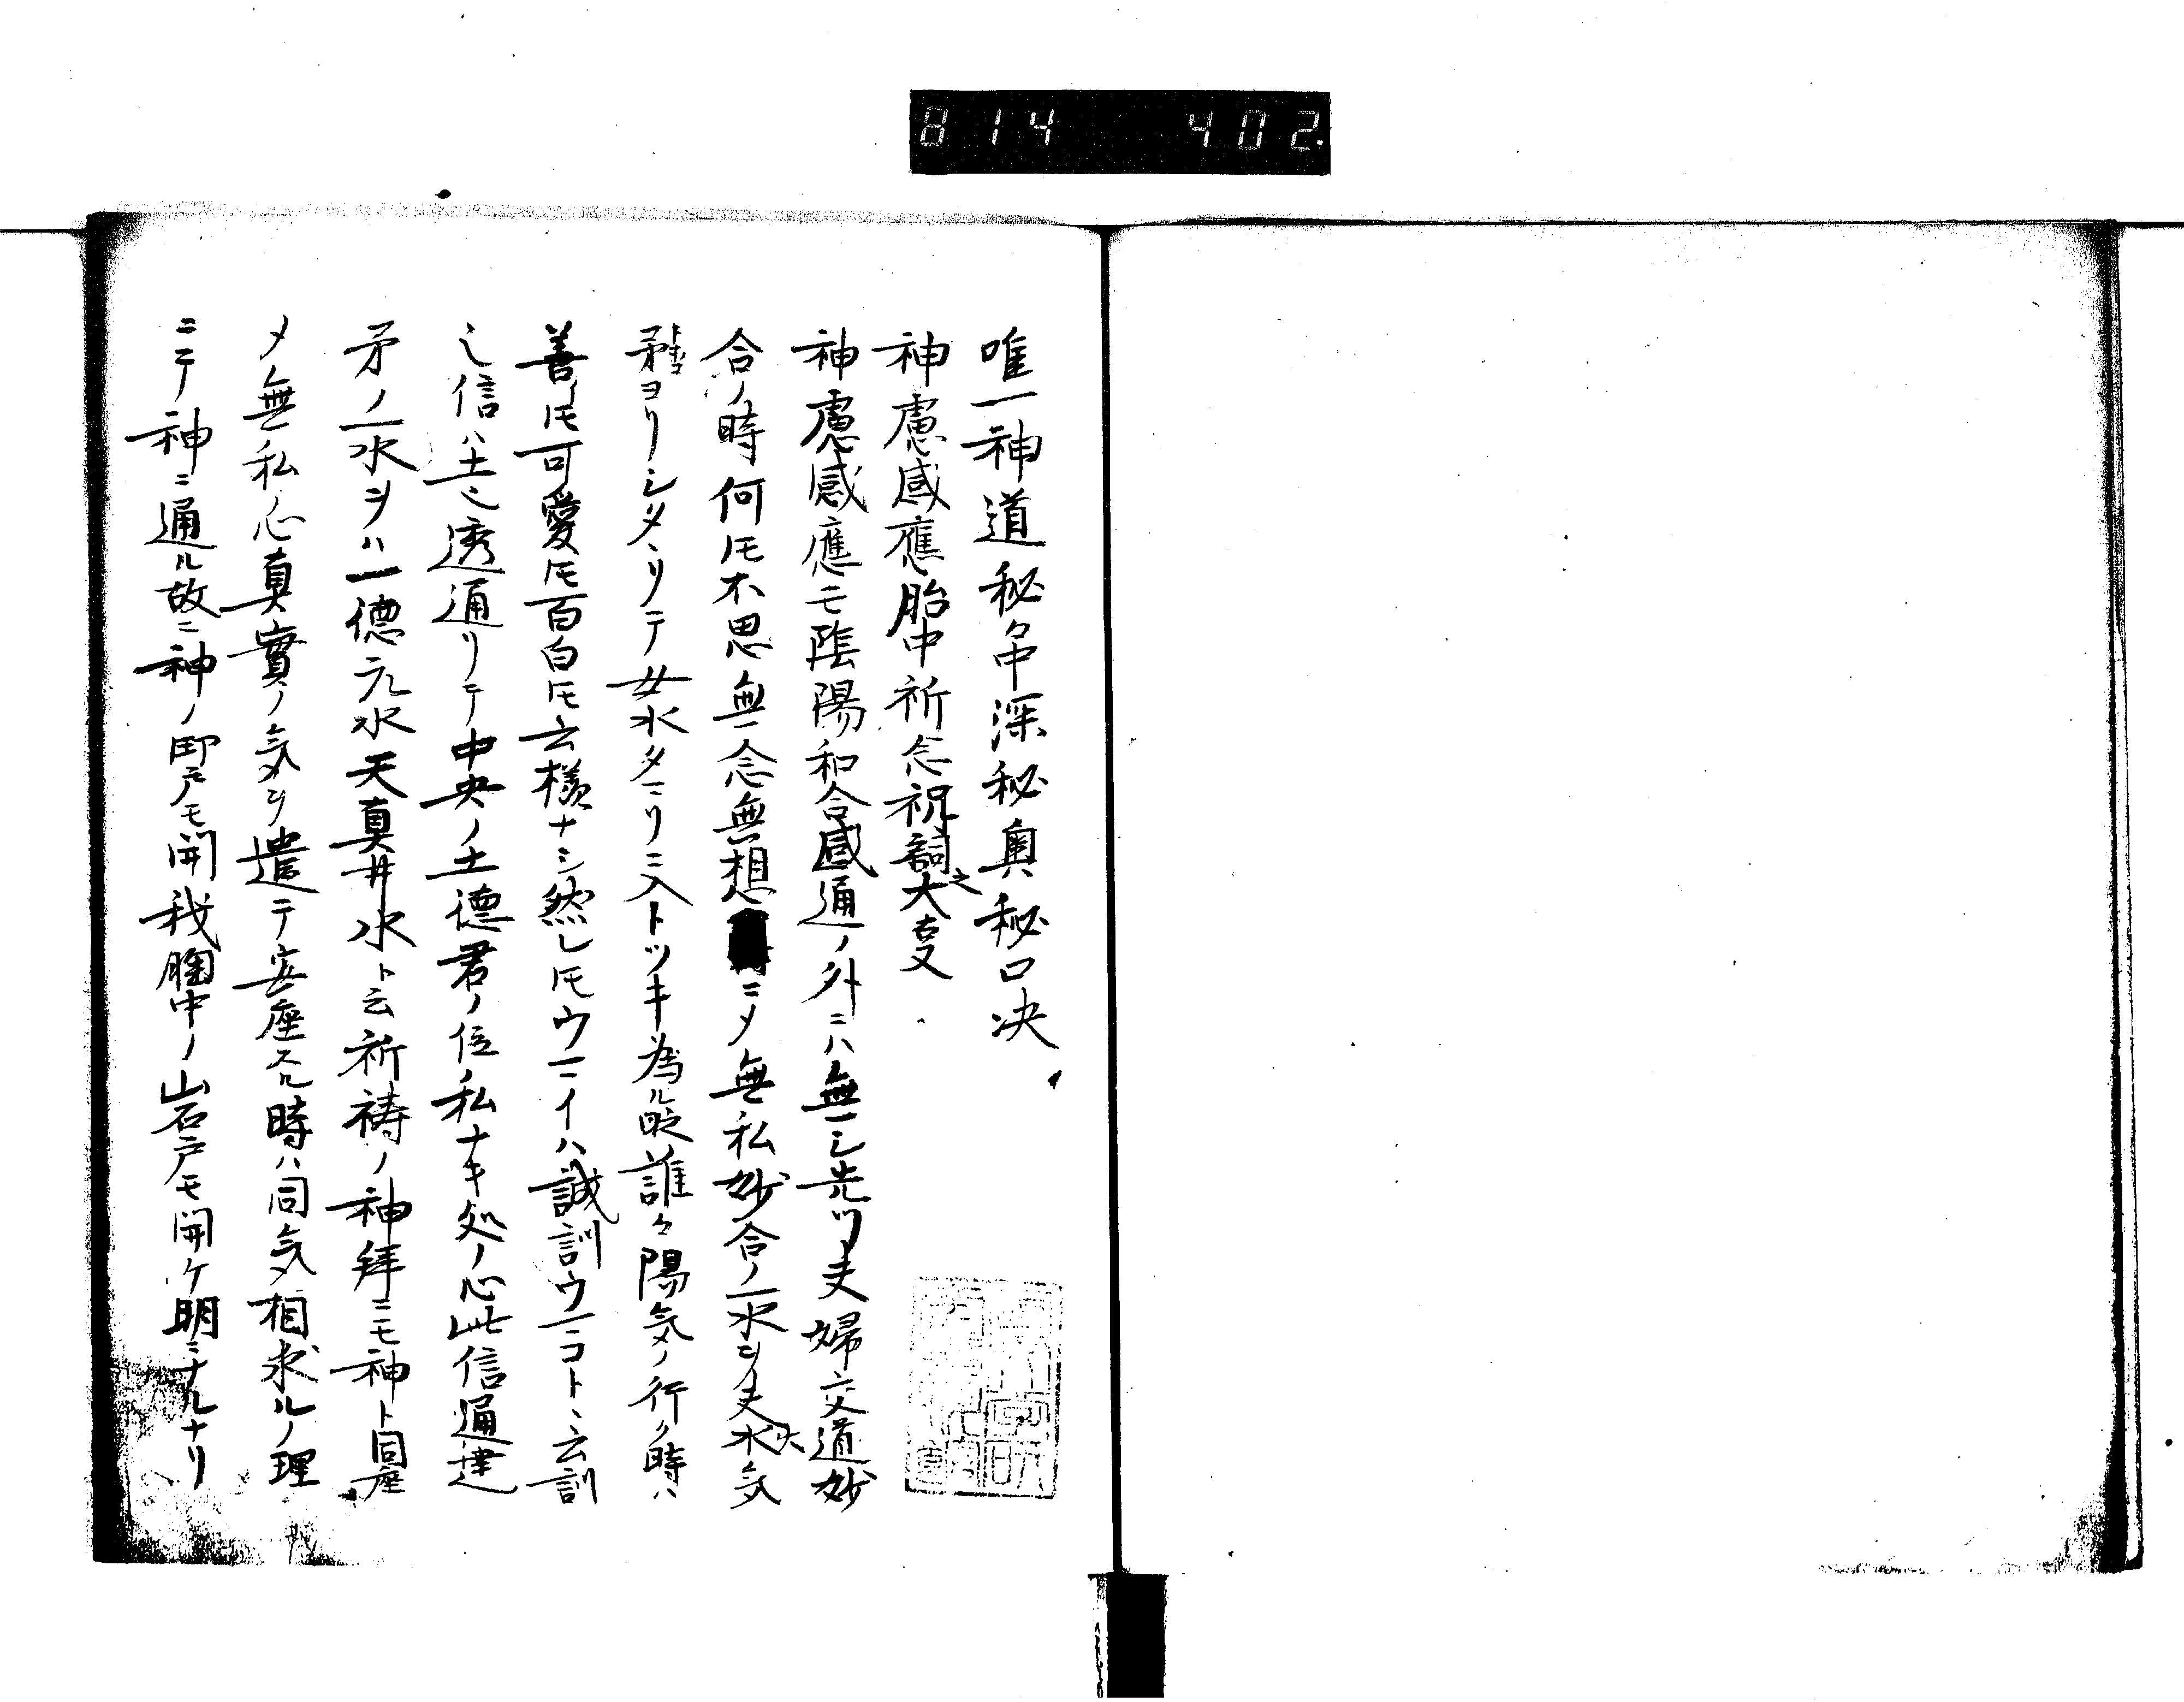 814 402
唯一神道秘中深秘奥秘口决
神慮感應胎中祈念祝詞之大事
神慮感應モ陰陽和合感通ノ外ニハ無シ先ツ夫婦交道妙
合ノ時何トモ不思無念無想ニメ無私妙合ノ一水ヲ夫水大気
ヨリシタヽリテ女水タマリニ入トツキ為ル誰々陽気ノ行ク時ハ
善ノトモ可愛トモ面白トモ云様ナシ然レトモウマイハ誠訓ウマコトヽ云訓
之信ハ土之透通リテ中央ノ土德君ノ位ノ私ナキ処ノ心此信通達
矛ノ一水ヲハ一德元水天真井水ト云祈祷ノ神拜ニモ神ト同座
メ無私心真實ノ気ヲ遣テ安座スル時ハ同気相求ルノ理
ニテ神ニ通ル故ニ神ノ戸モ開我胸中ノ岩戸モ開ケ明ニナルナリ